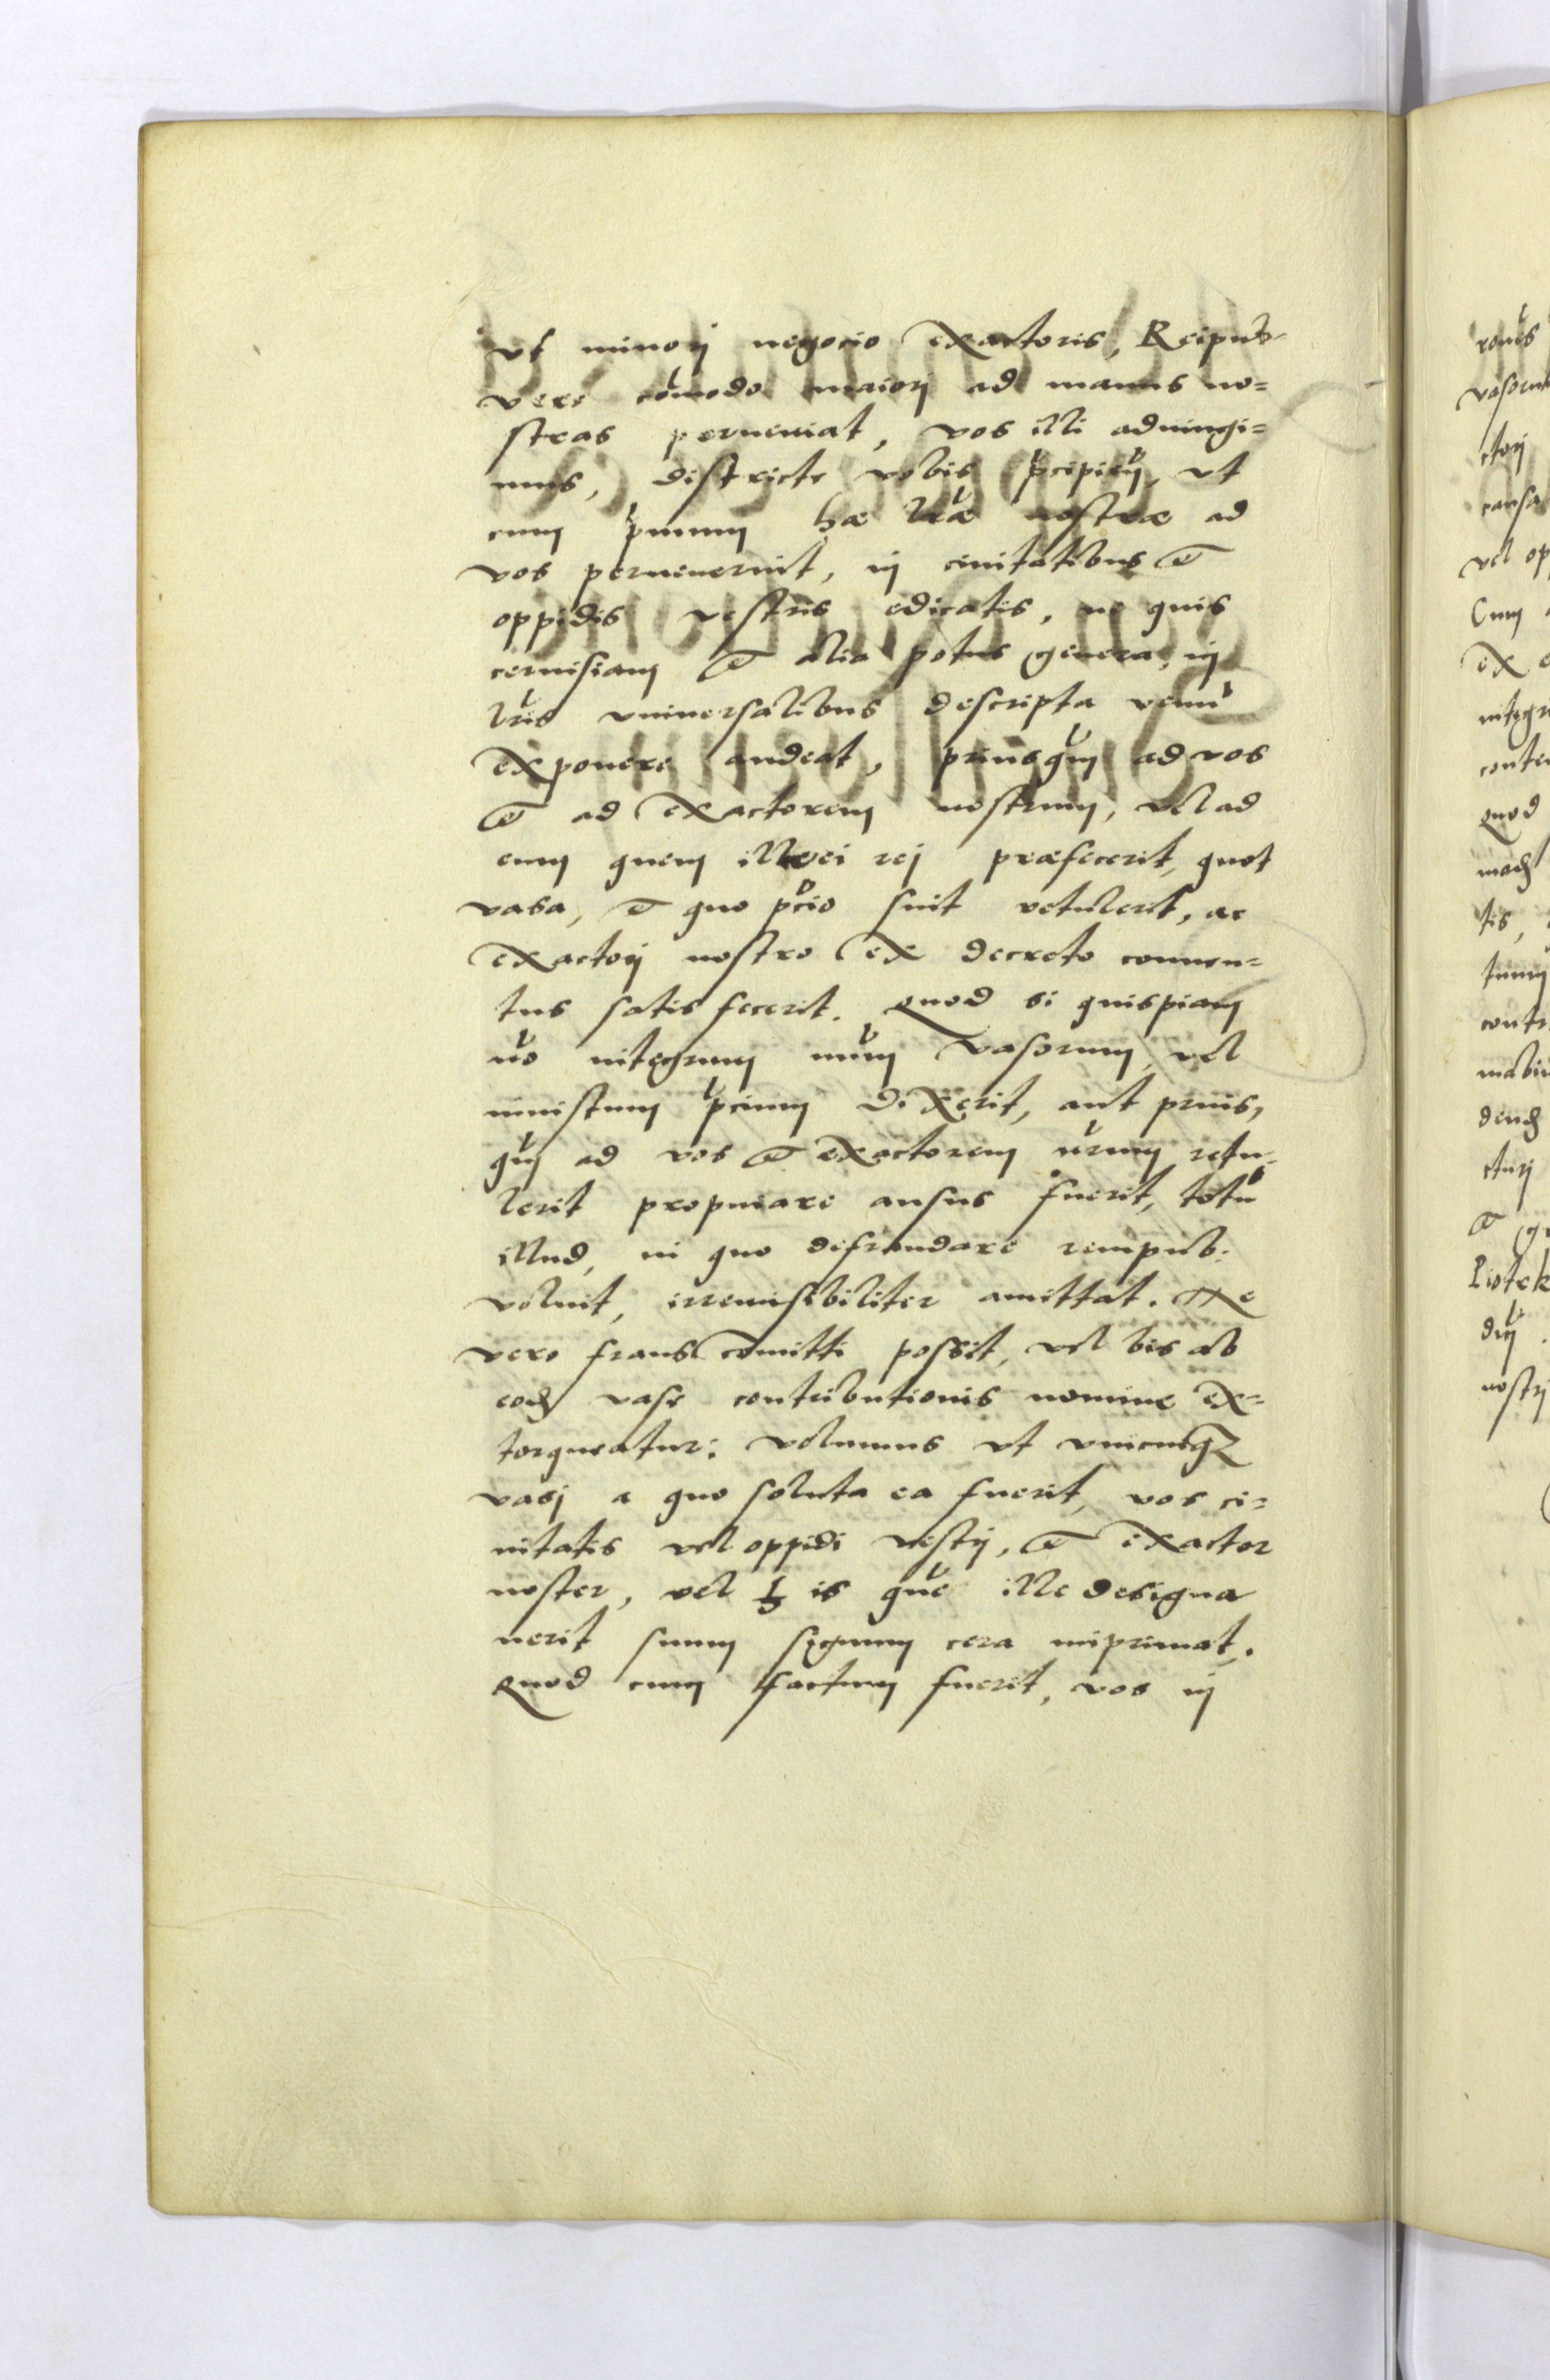 vt minorj negocio exactoris, Reipub.
vero comodo maiorj ad manus no=
stras perueniat, vos illi adiungi=
mus, districte vobis pcipien, vt
cum primum hæ lræ nostræ ad
vos peruenerint, in ciuitatibus et
oppidis vestris edicatis, ne quis
ceruisiam et alia potus genera, in
lris vniuersalibus descripta venu
exponere audeat, priusqum ad vos
et ad exactorem nostrum, vel ad
eum quem illi rej præfecerit, quot
vasa, et quo pcio sint retulerit, ac
exactorj nostro ex decreto conuen=
tus satis fecerit. Quod si quispiam
no integrum num vasorum vel
iniustum pcium dixerit, aut prius,
qum ad vos et exactorem nrum retu=
lerit propinare ausus fuerit, totu
illud, in quo defraudare rempub.
voluit, irremisibiliter amittat. Ne
vero fraus comitti possit, vel bis ab
eod vase contributionis nomine ex=
torqueatur: volumus vt vnicuiq
vasj a quo soluta ea fuerit, vos ci=
uitatis vel oppidi vestrj, et exactor
noster, vel is que ille designa
uerit suum signum cera imprimat.
Quod cum factum fuerit, vos in
rouis
vasorum
ctorj
causa
vel opp
Cum
ex
integr
conten
quod
mod
tis,
contr
dend
cturj
Piotrk
nostrj